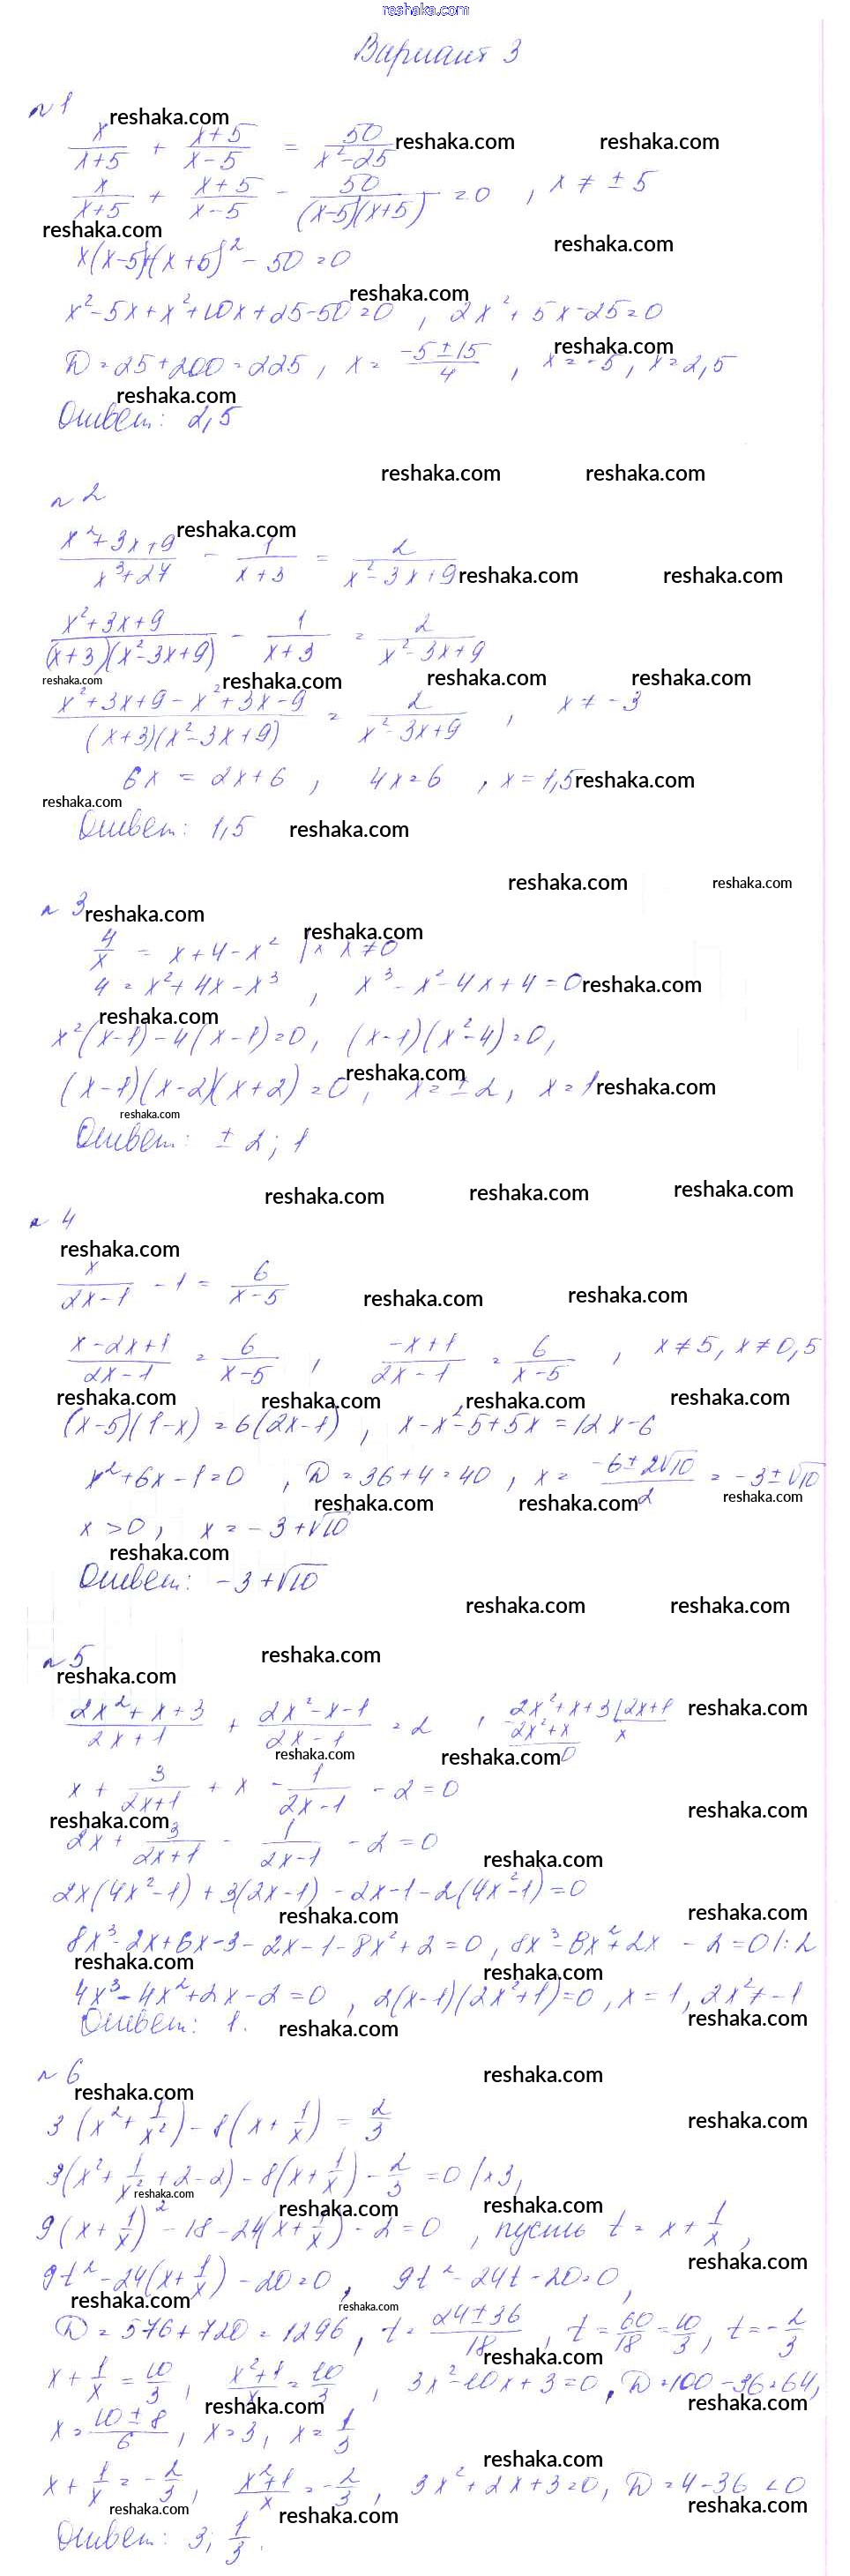 reshaka.com
Вариант 3
№1 reshaka.com
x/(x+5) + (x+5)/(x-5) = 50/(x²-25) reshaka.com reshaka.com
x/(x+5) + (x+5)/(x-5) - 50/((x-5)(x+5)) = 0 , x ≠ ±5
reshaka.com reshaka.com
x(x-5)+(x+5)² - 50 = 0
reshaka.com
x²-5x+x²+10x+25-50=0 , 2x²+5x-25=0
reshaka.com
D=25+200=225, x = (-5±15)/4 , x=-5, x=2,5
reshaka.com
Ответ: 2,5
reshaka.com reshaka.com
№2
reshaka.com
(x²+3x+9)/(x³+27) - 1/(x+3) = 2/(x²-3x+9) reshaka.com reshaka.com
(x²+3x+9)/((x+3)(x²-3x+9)) - 1/(x+3) = 2/(x²-3x+9)
reshaka.com reshaka.com reshaka.com reshaka.com
(x²+3x+9-x²+3x-9)/((x+3)(x²-3x+9)) = 2/(x²-3x+9) , x ≠ -3
6x = 2x+6 , 4x=6 , x=1,5 reshaka.com
reshaka.com
Ответ: 1,5 reshaka.com
reshaka.com reshaka.com
№3 reshaka.com
reshaka.com
4/x = x+4-x² |·x x≠0
4 = x²+4x-x³ , x³-x²-4x+4=0 reshaka.com
reshaka.com
x²(x-1)-4(x-1)=0, (x-1)(x²-4)=0,
reshaka.com
(x-1)(x-2)(x+2)=0, x=±2, x=1 reshaka.com
reshaka.com
Ответ: ±2; 1
reshaka.com reshaka.com reshaka.com
№4
reshaka.com
x/(2x-1) - 1 = 6/(x-5)
reshaka.com reshaka.com
(x-2x+1)/(2x-1) = 6/(x-5) , (-x+1)/(2x-1) = 6/(x-5) , x≠5, x≠0,5
reshaka.com reshaka.com reshaka.com reshaka.com
(x-5)(1-x)=6(2x-1) , x-x²-5+5x=12x-6
x²+6x-1=0 , D=36+4=40, x = (-6±2√10)/2 = -3±√10
reshaka.com reshaka.com reshaka.com
x>0, x=-3+√10
reshaka.com
Ответ: -3+√10
reshaka.com reshaka.com
№5 reshaka.com
reshaka.com
(2x²+x+3)/(2x+1) + (2x²-x-1)/(2x-1) = 2 , 2x²+x+3 | 2x+1 reshaka.com
2x²+x x
0
reshaka.com reshaka.com
x + 3/(2x+1) + x - 1/(2x-1) - 2 = 0
reshaka.com reshaka.com
2x + 3/(2x+1) - 1/(2x-1) - 2 = 0
reshaka.com
2x(4x²-1)+3(2x-1)-2x-1-2(4x²-1)=0
reshaka.com reshaka.com
8x³-2x+6x-3-2x-1-8x²+2=0, 8x³-8x²+2x-2=0 |:2
reshaka.com reshaka.com
4x³-4x²+2x-2=0 , 2(x-1)(2x²+1)=0, x=1, 2x²≠-1
reshaka.com
Ответ: 1. reshaka.com
№6 reshaka.com
reshaka.com
3(x²+1/x²)-8(x+1/x) = 2/3 reshaka.com
3(x²+1/x²+2-2)-8(x+1/x)-2/3=0 |·3,
reshaka.com reshaka.com reshaka.com
9(x+1/x)²-18-24(x+1/x)-2=0 , пусть t = x+1/x ,
reshaka.com
9t²-24(x+1/x)-20=0, 9t²-24t-20=0,
reshaka.com reshaka.com
D=576+720=1296, t=(24±36)/18 , t=60/18=10/3, t=-2/3
reshaka.com
x+1/x=10/3, (x²+1)/x=10/3 , 3x²-10x+3=0, D=100-36=64,
reshaka.com reshaka.com
x=(10±8)/6, x=3, x=1/3
reshaka.com
x+1/x=-2/3, (x²+1)/x=-2/3, 3x²+2x+3=0, D=4-36<0
reshaka.com reshaka.com reshaka.com
Ответ: 3; 1/3.